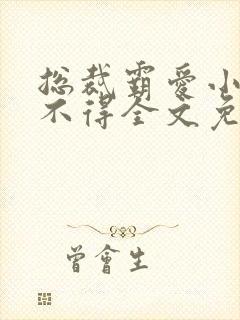 总裁霸爱小
不得全文免
曾會生